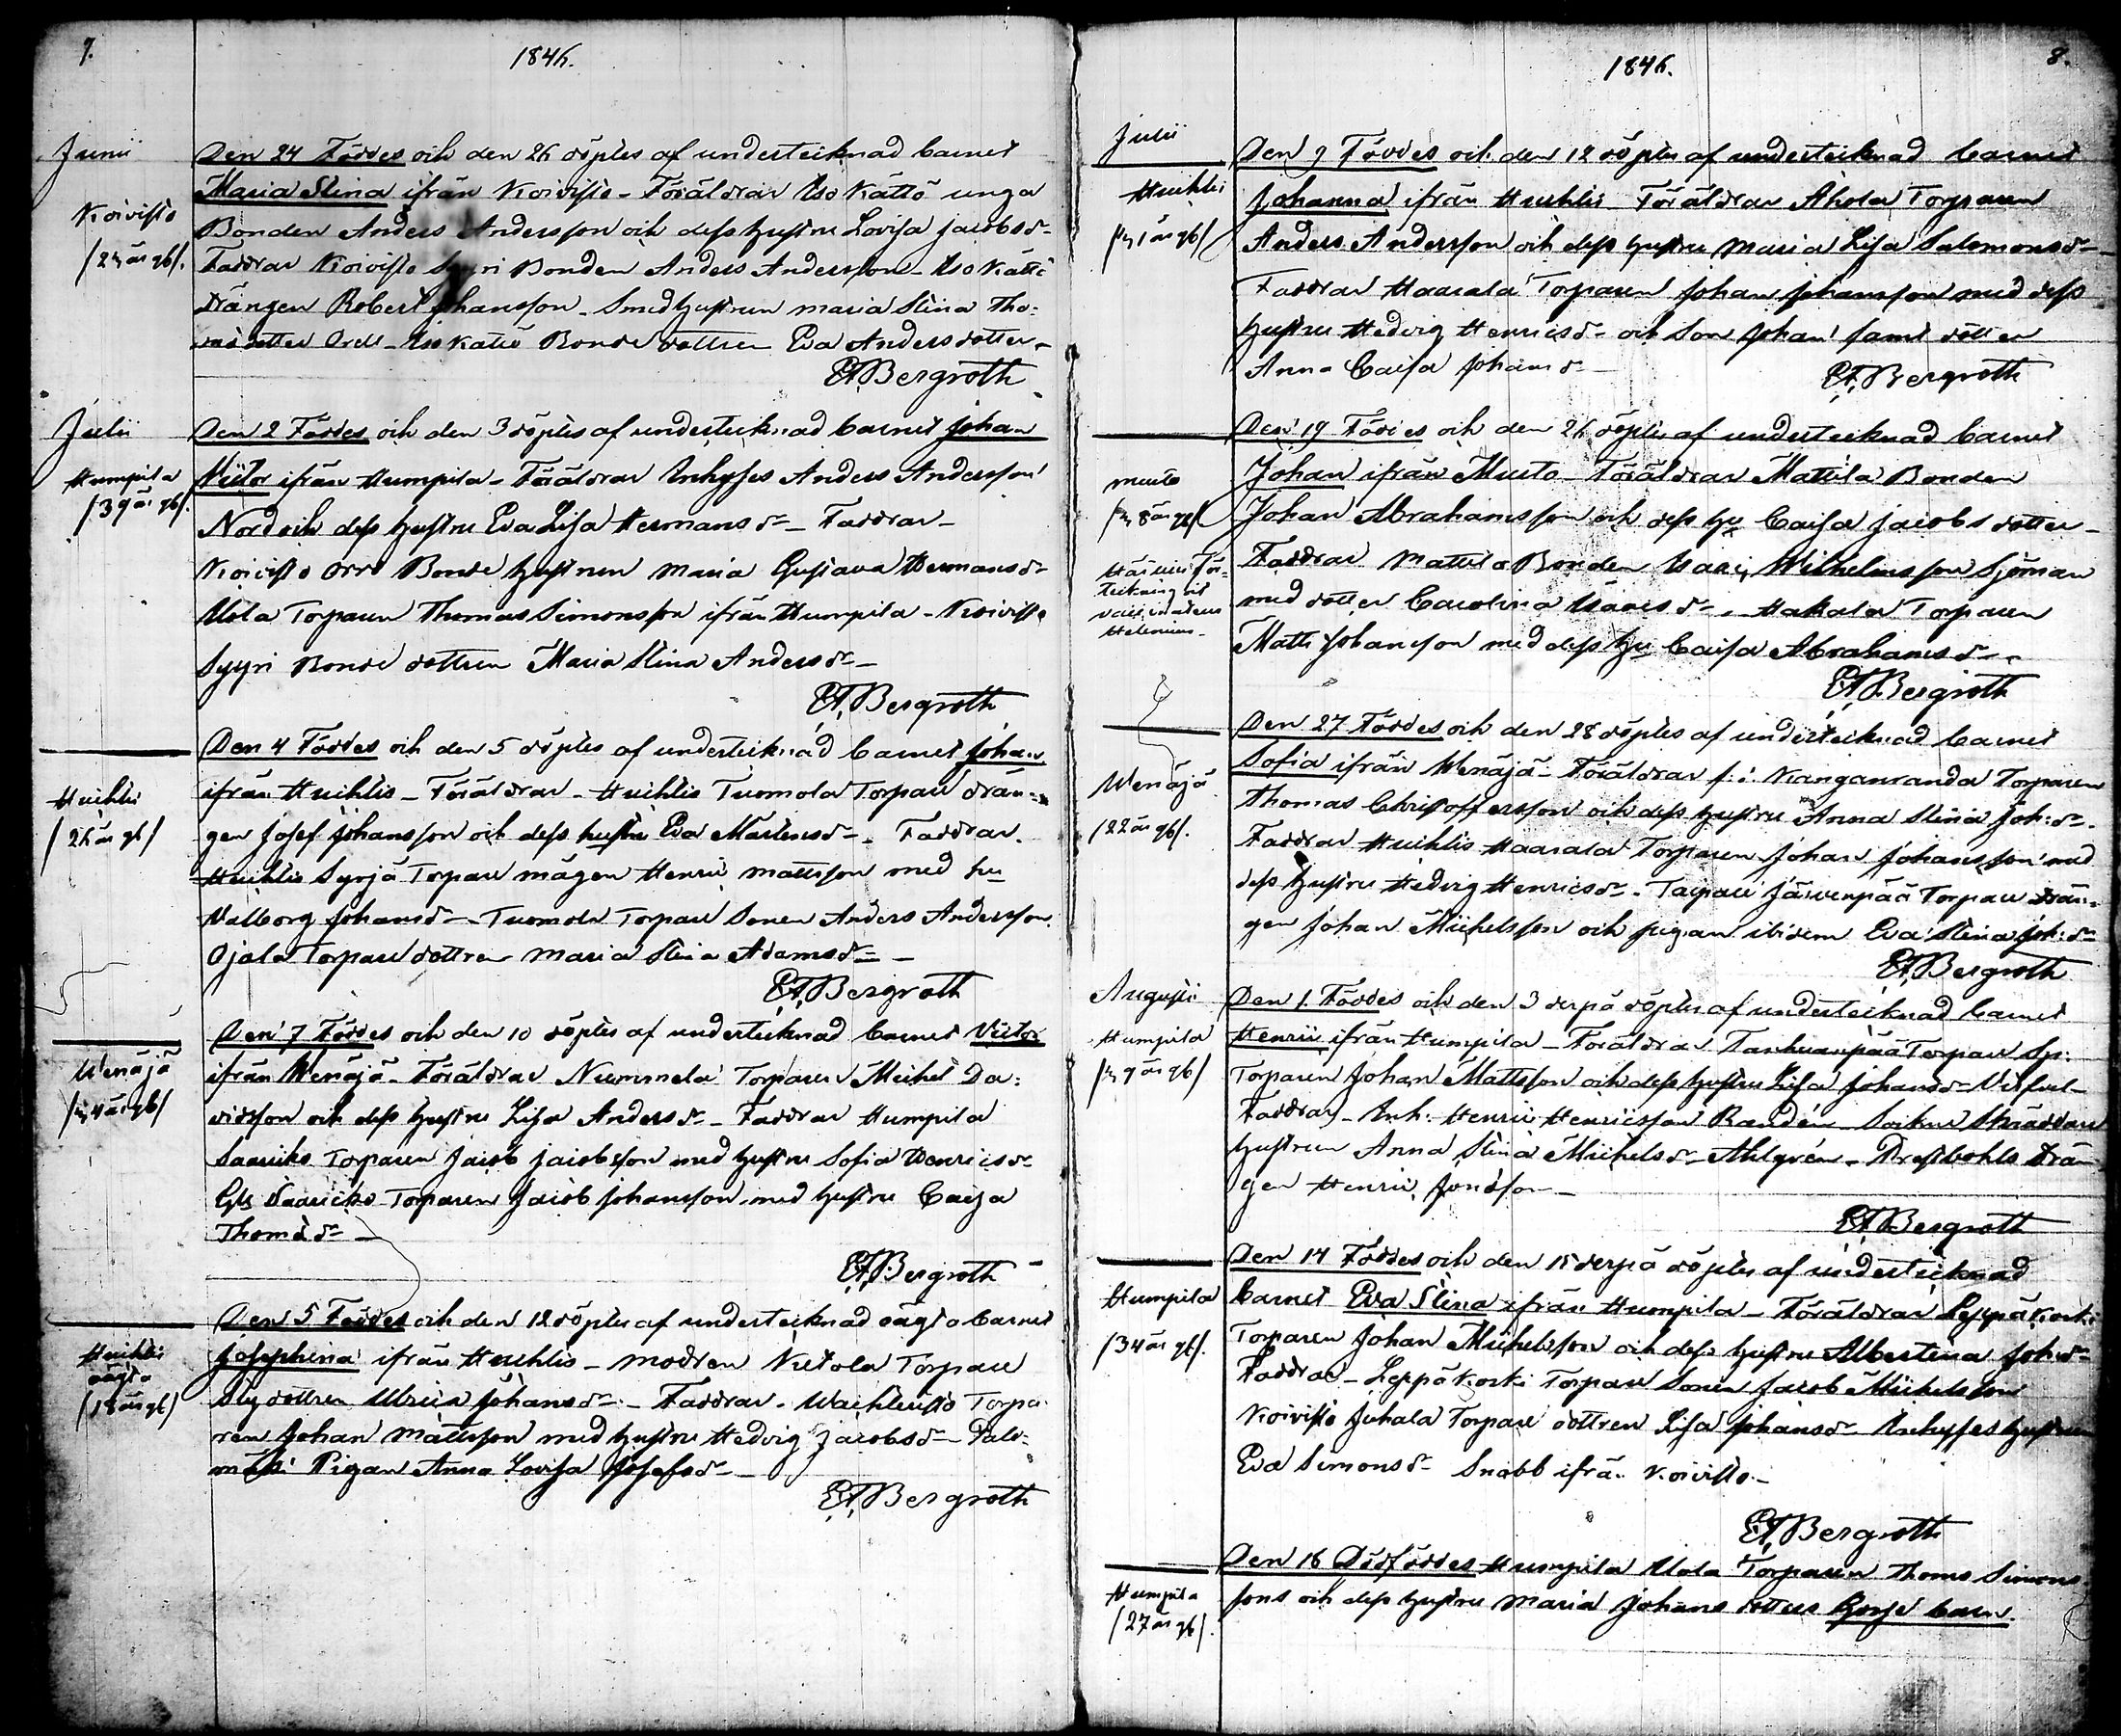 7.
1846.
Junii
Koivisto
/24 år gl/.
Den 24 Föddes och den 26 döptes af undertecknad barnet
Maria Stina ifrån Koivisto - Föräldrar Iso Kättö unga
Bonden Anders Andersson och dess hustru Lovisa Jacobsd-
Faddrar Koivisto Bonden Anders Andersson - Iso Kättö
Drängen Robert Johansson - Smedhustrun Maria Stina Tho-
mädotter - Iso Kättö Bondedottren Eva Andersdotter -
Bergroth
Julii
Humpila
/39 år gl/.
Den 2 Föddes och den 3 döptes af undertecknad barnet Johan
Victor ifrån Humpila - Föräldrar Inhyses Anders Andersson
Nord och dess hustru Eva Lisa Hermansd- - Faddrar -
Koivisto Orri Bonde hustrun Maria Gustava Hermansd-
Uola Torparen Thomas Simonsson ifrån Humpila - Koivisto
Syyri Bonde dottren Maria Stina Andersd- -
Bergroth
Huihlis
/26 år gl/
Den 4 Föddes och den 5 döptes af undertecknad barnet Johan
ifrån Huihlis - Föräldrar - Huihlis Tuomola Torpare drän-
gen Josef Johansson och dess hustru Eva Mårtensd- - Faddrar.
Huihlis Syrjä Torpare mågen Henric Mattsson med hu
Valborg Johansd- - Tuomola Torpare Sonen Anders Andersson
Ojala Torpare dottren Maria Stina Adamsd- -
Bergroth
Wenäjä
Den 7 Föddes och den 10 döptes af undertecknad barnet Victor
ifrån Wenäjä - Föräldrar Nummela Torparen Michel Da-
vidsson och dess hustru Lisa Andersd- - Faddrar Humpila
Saariko Torparen Jacob Jacobsson med hustru Sofia Henricsd-
Saariko Torparen Jacob Johansson med hustru Caisa
Thomäd- -
Bergroth
Huihlis
oägta
/18 år gl/
Den 5 Föddes och den 12 döptes af undertecknad oägta barnet
Josephina ifrån Huihlis - modren Torpare
dottren Ulrica Johansd- - Faddrar - Torpa-
ren Johan Mattsson med hustru Hedvig Jacobsd-
Pigan Anna Lovisa Josefsd- -
Bergroth
8.
1846.
Julii
Huihlis
Den 9 Föddes och den 12 döptes af undertecknad barnet
Johanna ifrån Huihlis Föräldrar Ahola Torparen
Anders Andersson och dess hustru Maria Lisa Salomonsd- -
Faddrar Haarala Torparen Johan Johansson med dess
hustru Hedvig Henricsd- och Son Johan samt dotter
Anna Caisa Johansd -
Bergroth
Murto
Den 19 Föddes och den 26 döptes af undertecknad barnet
Johan ifrån Murto - Föräldrar Mattila Bonden
Johan Abrahamsson och dess hu Caisa Jacobsdotter -
Faddrar Mattila Bonden Isaac Wilhelmsson Sjöman
med dotter Carolina Isaacsd- - Hakala Torparen
Matts Johansson med dess hu Caisa Abrahamsd- -
Bergroth
Wenäjä
/22 år gl/.
Den 27 Föddes och den 28 döptes af undertecknad barnet
Sofia ifrån Wenäjä - Föräldrar Kanganranda Torparen
Thomas Christoffersson och dess hustru Anna Stina Joh:d-
Faddrar Huihlis Haarala Torparen Johan Johansson med
dess hustru Hedvig Henricsd- - Järvenpää Torpare drän-
gen Johan Michelsson och pigan ibidem Eva Stina Joh:d-
Bergroth
Augusti
Humpila
Den 1 Föddes och den 3 derpå döptes af undertecknad barnet
Henric ifrån Humpila - Föräldrar Tanhuanpää Torpare
Torparen Johan Mattsson och dess hustru Lisa Johansd-
Faddrar - Inh. Henric Henricsson Randén - Socken Skräddare
hustrun Anna Stina Michelsd- Ahlgrén - Drän-
gen Henric -
Bergroth
Humpila
/34 år gl/.
Den 14 Föddes och den 15 derpå döptes af undertecknad
barnet Eva Stina ifrån Humpila - Föräldrar Leppäkoski
Torparen Johan Michelsson och dess hustru Albertina Joh:d-
Faddrar - Leppäkoski Torpare Sonen Jacob Michelsson
Koivisto Juhala Torpare dottren Lisa Johansd- Inhyses hustrun
Eva Simonsd- Snabb ifrån Koivisto -
Bergroth
Humpila
/27 år gl/.
Den 16 Dödföddes Humpila Uola Torparen Thoms Simons
sons och dess hustru Maria Johans dotters Gosse barn.